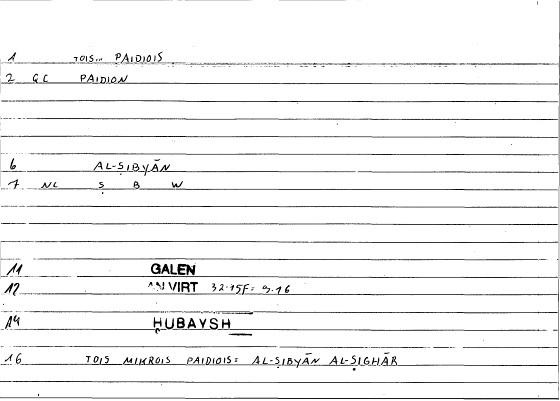 1 TOIS... PAIDIOIS
2 GC PAIDION
6 AL-ṢIBYĀN
7 NL Ṣ B W
11 GALEN
12 AN VIRT 32.15F= 9.16
14 ḤUBAYSH
16 TOIS MIKROIS PAIDIOIS= AL-ṢIBYĀN AL-ṢIGHĀR